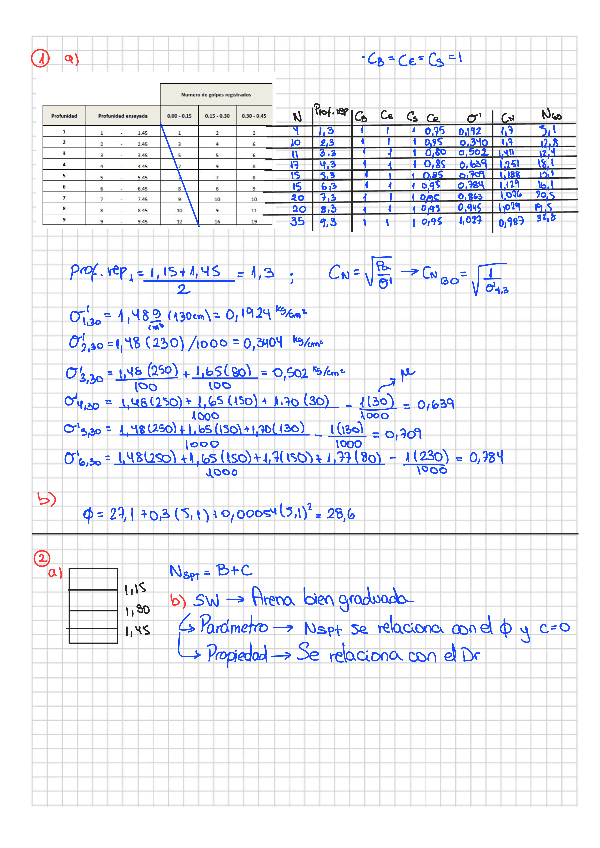 1 a) - CB = CE = CS = 1
Numero de golpes registrados
Profunidad Profunidad ensayada 0.00 - 0.15 0.15 - 0.30 0.30 - 0.45
N Prof. rep CB CE CS CR σ' CN N60
1 1 - 1.45 1 2 2 4 1,3 1 1 1 0,75 0,192 1,7 5,1
2 2 - 2.45 3 4 6 10 2,3 1 1 1 0,75 0,340 1,7 12,8
3 3 - 3.45 5 5 6 11 3,3 1 1 1 0,80 0,502 1,411 12,4
4 4 - 4.45 9 8 17 4,3 1 1 1 0,85 0,639 1,251 18,1
5 5 - 5.45 7 8 15 5,3 1 1 1 0,85 0,709 1,188
6 6 - 6.45 8 6 9 15 6,3 1 1 1 0,95 0,784 1,129 16,1
7 7 - 7.45 9 10 10 20 7,3 1 1 1 0,95 0,863 1,076 20,5
8 8 - 8.45 10 9 11 20 8,3 1 1 1 0,95 0,945 1,029 19,5
9 9 - 9.45 12 16 19 35 9,3 1 1 1 0,95 1,027 0,987 32,8
Prof. rep1 = 1,15 + 1,45 / 2 = 1,3 ; CN = √Pa/σ' → CN60 = √1/σ'1,3
σ'1,30 = 1,48 g/cm³ (130cm) = 0,1924 kg/cm²
σ'2,30 = 1,48 (230) /1000 = 0,3404 kg/cm²
σ'3,30 = 1,48 (250) / 100 + 1,65 (80) / 100 = 0,502 kg/cm²
σ'4,30 = 1,48 (250) + 1,65 (150) + 1.70 (30) / 1000 - 1(30) / 1000 → μ = 0,639
σ'5,30 = 1,48(250) + 1,65(150) + 1,70(130) / 1000 - 1(130) / 1000 = 0,709
σ'6,30 = 1,48(250) + 1,65(150) + 1,7(150) + 1,77(80) / 1000 - 1(230) / 1000 = 0,784
b)
φ = 27,1 + 0,3 (5,1) + 0,00054 (5,1)² = 28,6
2
a) NSPT = B + C
1,15
b) SW → Arena bien graduada
1,30
↳ Parámetro → NSPT se relaciona con el φ y c=0
1,45
↳ Propiedad → Se relaciona con el Dr